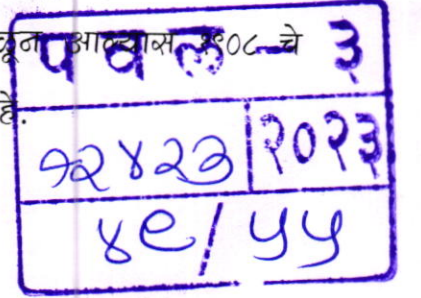 ळून आल्यास १९०८ चे
प व ल - ३
हे.
१२४२३ २०२३
४९/५५